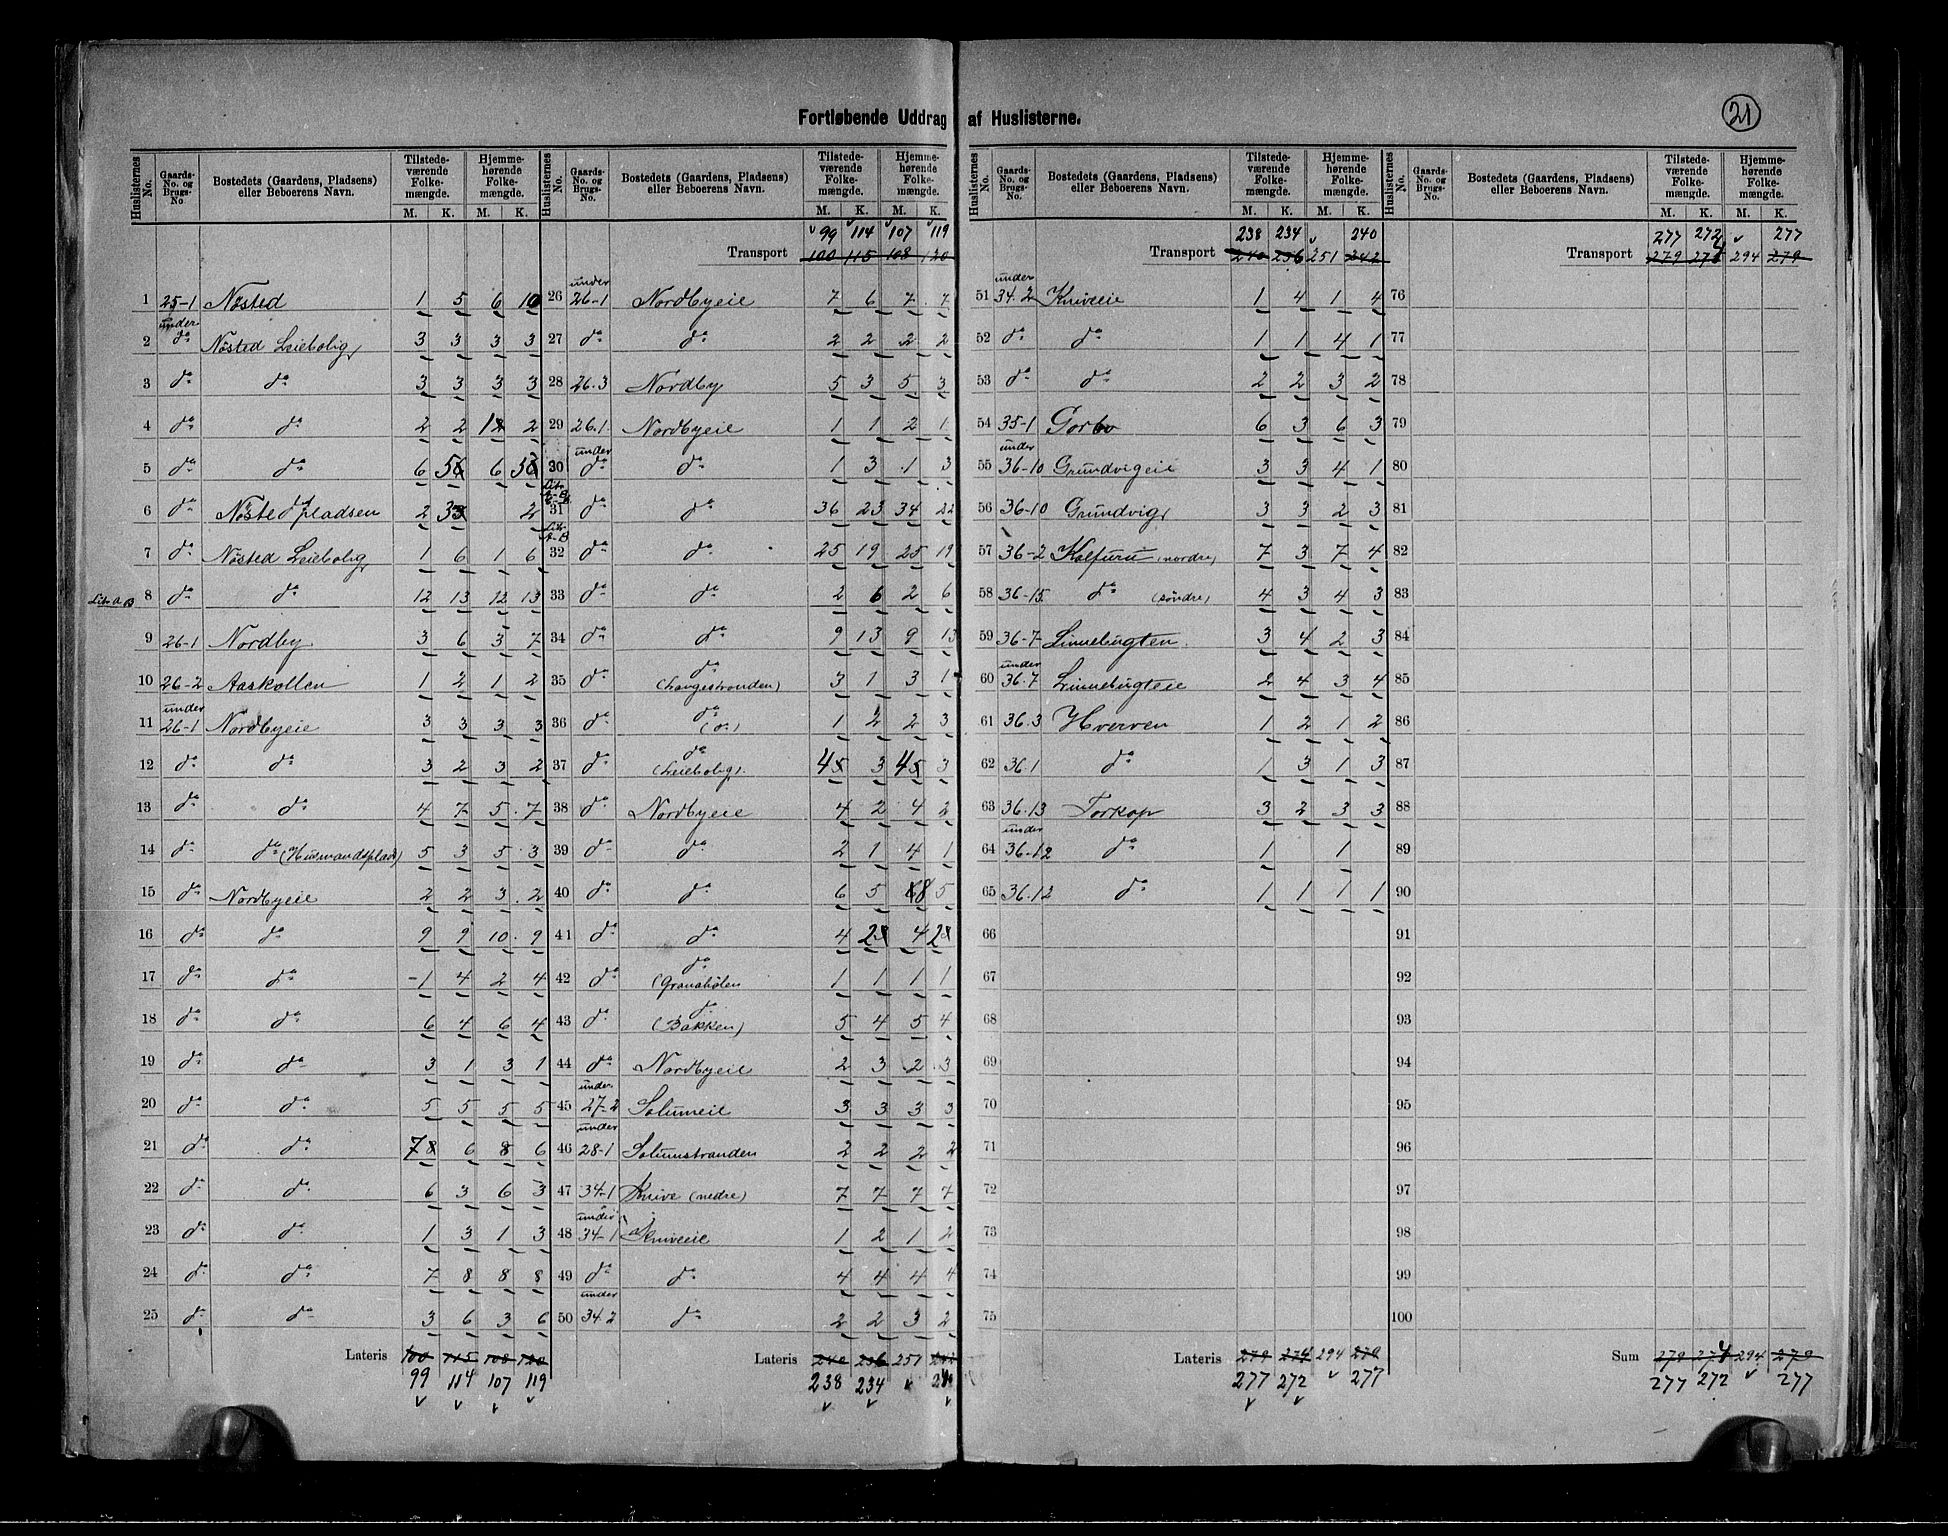 Fortløbende Uddrag af Huslisterne.
21
Huslisternes No. | Gaards-No. og Brugs-No. | Bostedets (Gaardens, Pladsens) eller Beboerens Navn. | Tilstedeværende Folkemængde. M. K. | Hjemmehørende Folkemængde. M. K.
1 25-1 Nøsted 1 5 6 10
2 under do Nøsted Leiebolig 3 3 3 3
3 do do 3 3 3 3
4 do do 2 2 1 2
5 do do 6 5 6 5
6 do Nøsted pladsen 2 3 2
7 do Nøsted Leiebolig 1 6 1 6
Litr A B 8 do do 12 13 12 13
9 26-1 Nordby 3 6 3 7
10 26-2 Aaskollen 1 2 1 2
11 under 26-1 Nordbyeie 3 3 3 3
12 do do 3 2 3 2
13 do do 4 7 5 7
14 do do (Husmandsplads) 5 3 5 3
15 do Nordbyeie 2 2 3 2
16 do do 9 9 10 9
17 do do 1 4 2 4
18 do do 6 4 6 4
19 do do 3 1 3 1
20 do do 5 5 5 5
21 do do 7 8 6 8 6
22 do do 6 3 6 3
23 do do 1 3 1 3
24 do do 7 8 8 8
25 do do 3 6 3 6
Lateris 100 115 108 120
99 114 107 119
Huslisternes No. | Gaards-No. og Brugs-No. | Bostedets (Gaardens, Pladsens) eller Beboerens Navn. | Tilstedeværende Folkemængde. M. K. | Hjemmehørende Folkemængde. M. K.
99 114 107 119
Transport 100 115 108 120
26 under 26-1 Nordbyeie 7 6 7 7
27 do do 2 2 2 2
28 26.3 Nordby 5 3 5 3
29 26.1 Nordbyeie 1 1 2 1
30 under do do 1 3 1 3
31 do do 36 23 34 22
Litr A-B 32 do do 25 19 25 19
33 do do 2 6 2 6
34 do do 9 13 9 13
35 do do (Langestranden) 3 1 3 1
36 do do (do) 1 2 2 3
37 do do (Leiebolig) 4 5 3 4 5 3
38 do Nordbyeie 4 2 4 2
39 do do 2 1 4 1
40 do do 6 5 8 5
41 do do 4 2 4 2
42 do do (Granahølen 1 1 1 1
43 do do (Bakken) 5 4 5 4
44 do Nordbyeie 2 3 2 3
45 under 27-2 Solumeie 3 3 3 3
46 under 28-1 Solumstranden 2 2 2 2
47 34-1 Knive (nedre) 7 7 7 7
48 under 34-1 Kniveeie 1 2 1 2
49 do do 4 4 4 4
50 under 34.2 do 2 2 3 2
Lateris 240 236 251 242
238 234 240
Huslisternes No. | Gaards-No. og Brugs-No. | Bostedets (Gaardens, Pladsens) eller Beboerens Navn. | Tilstedeværende Folkemængde. M. K. | Hjemmehørende Folkemængde. M. K.
238 234 240
Transport 240 236 251 242
51 under 34.2 Kniveeie 1 4 1 4
52 do do 1 1 4 1
53 do do 2 2 3 2
54 35-1 Gorbo 6 3 6 3
55 under 36-10 Grundvigeie 3 3 4 1
56 36-10 Grundvig 3 3 2 3
57 36-2 Kolfuru (nordre) 7 3 7 4
58 36-15 do (søndre) 4 3 4 3
59 36-7 Linnebugten 3 4 2 3
60 under 36.7 Linnebugteie 2 4 3 4
61 36.3 Hverven 1 2 1 2
62 36.1 do 1 3 1 3
63 36.13 Torkop 3 2 3 3
64 under 36-12 do 1 1
65 36.12 do 1 1 1 1
66
67
68
69
70
71
72
73
74
75
Lateris 279 274 294 279
277 272 277
Huslisternes No. | Gaards-No. og Brugs-No. | Bostedets (Gaardens, Pladsens) eller Beboerens Navn. | Tilstedeværende Folkemængde. M. K. | Hjemmehørende Folkemængde. M. K.
277 272 277
Transport 279 274 294 279
76
77
78
79
80
81
82
83
84
85
86
87
88
89
90
91
92
93
94
95
96
97
98
99
100
Sum 279 274 294 279
277 272 277